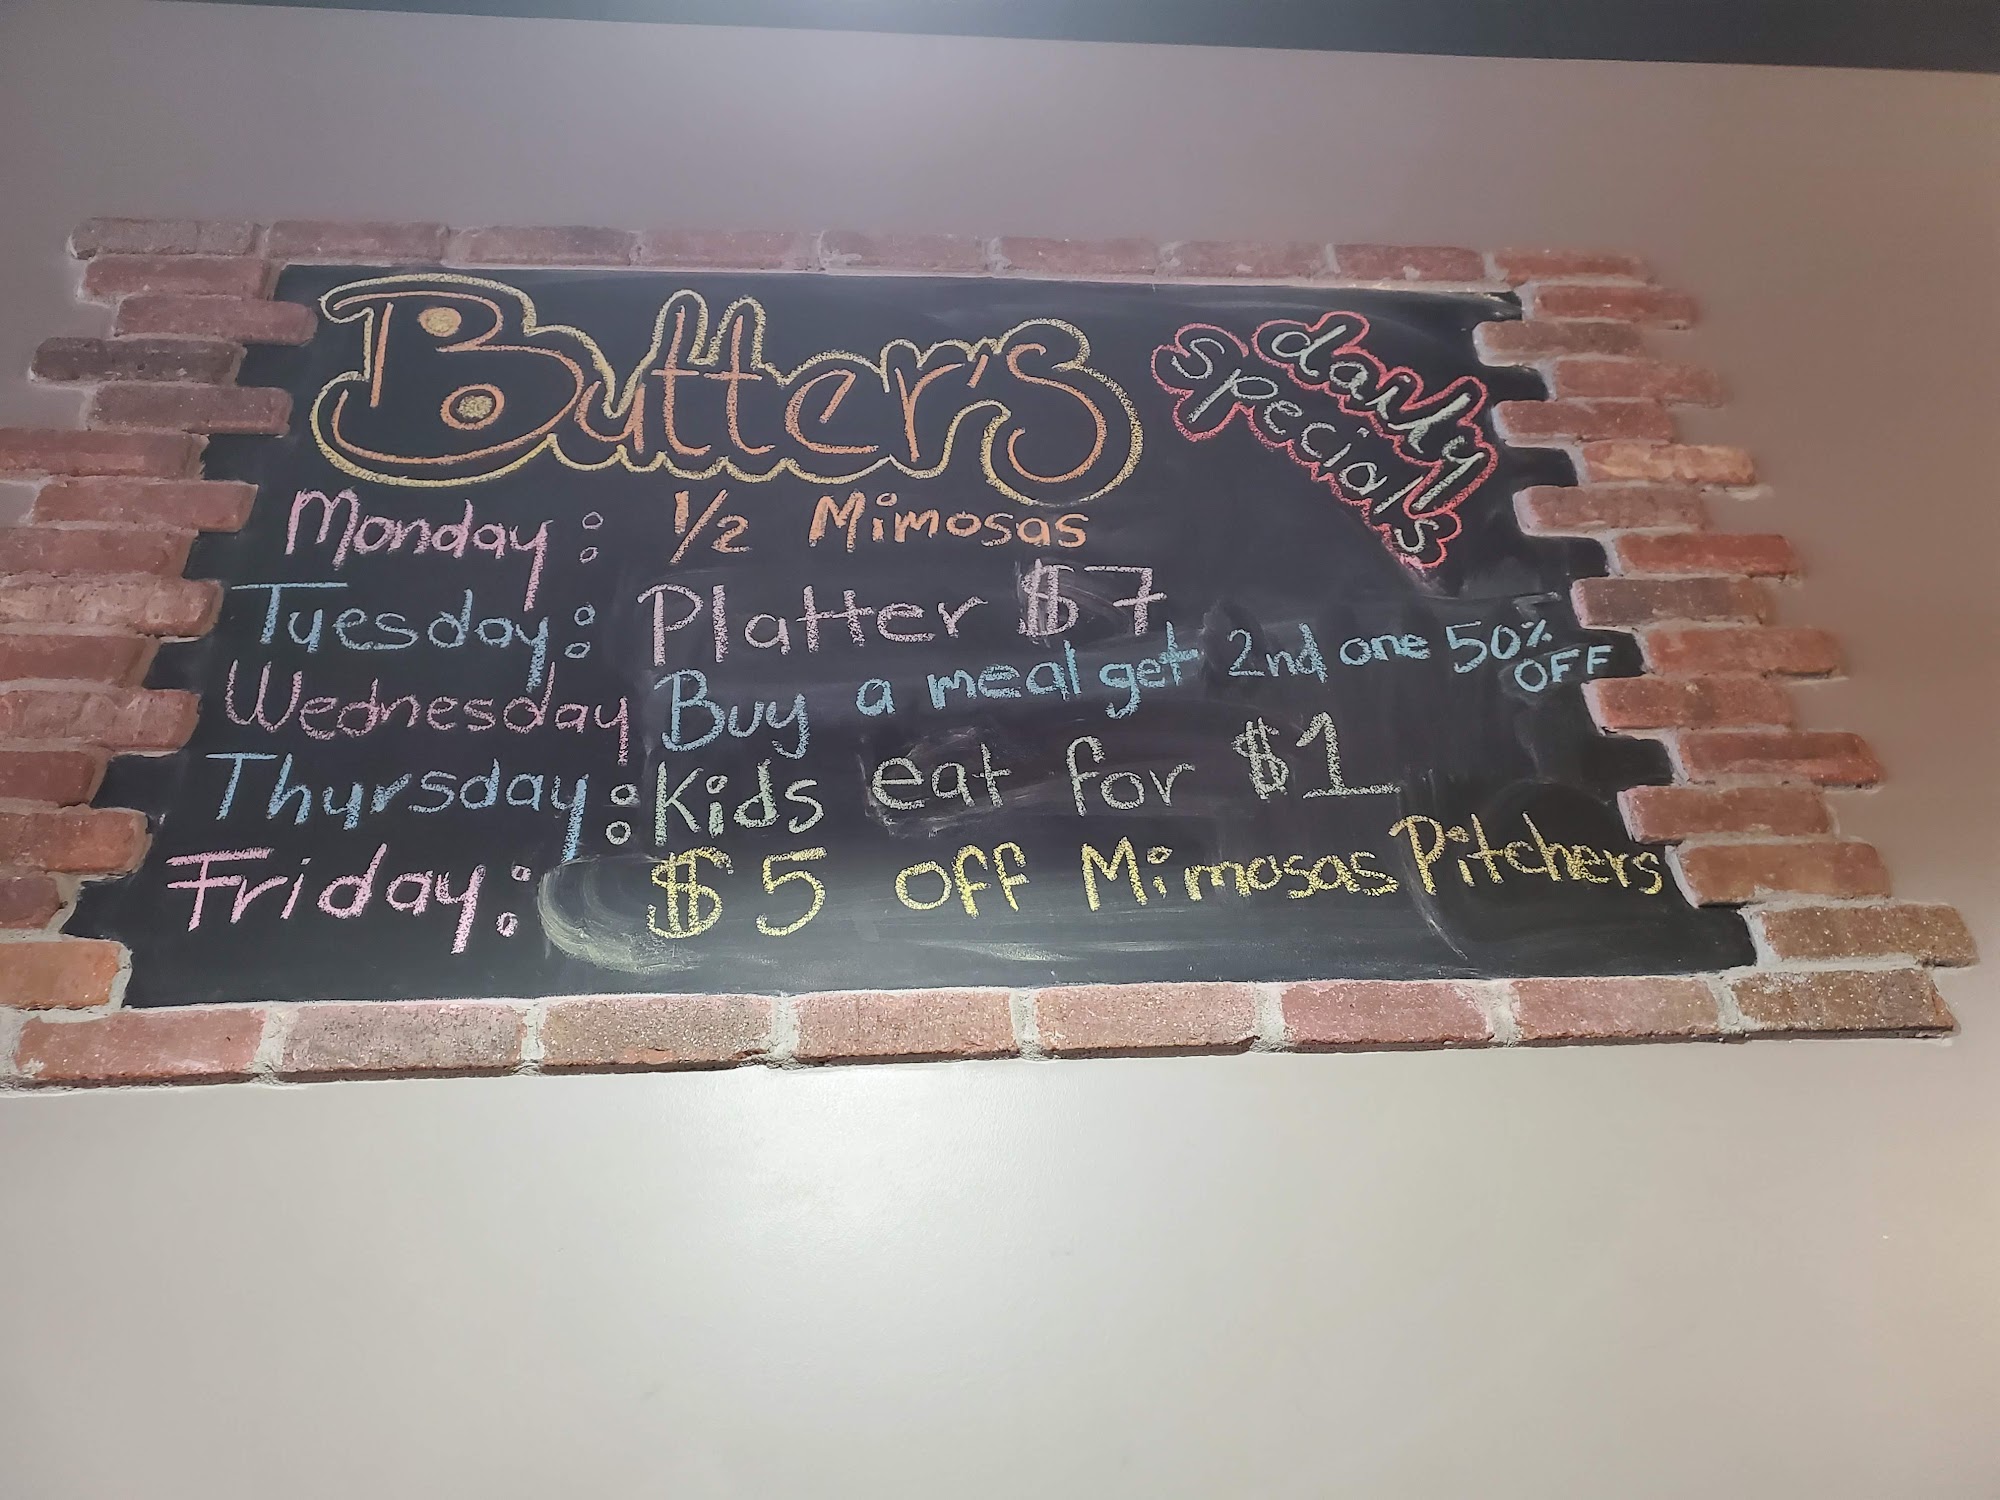 Butter's
daily
specials
Monday: 1/2 Mimosas
Tuesday: Platter $7
Wednesday Buy a meal get 2nd one 50% OFF
Thursday: Kids eat for $1
Friday: $5 off Mimosas Pitchers